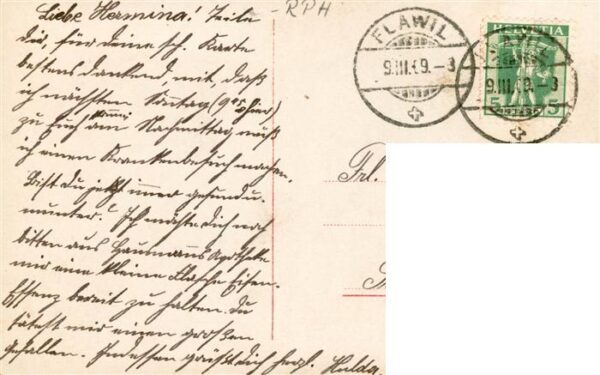 Liebe Hermina! Teile
dir, für deine sch. Karte
bestens dankend, mit, daß
ich nächsten Sonntag (9⁴⁵ hier)
zu Euch komme am Nachmittag, muß
ich einen Krankenbesuch machen.
Bist du jetzt immer gesund u.
munter? Ich möchte dich noch
bitten aus Haumanns Apotheke
mir eine kleine Flasche Eisen-
Essenz bereit zu halten. Du
tätest mir einen großen
Gefallen. Indessen grüßt dich herzl. Hulda.
-RPH
FLAWIL
9.III. 9.-3
HELVETIA
5 5
9.III. 9.-3
Frl.